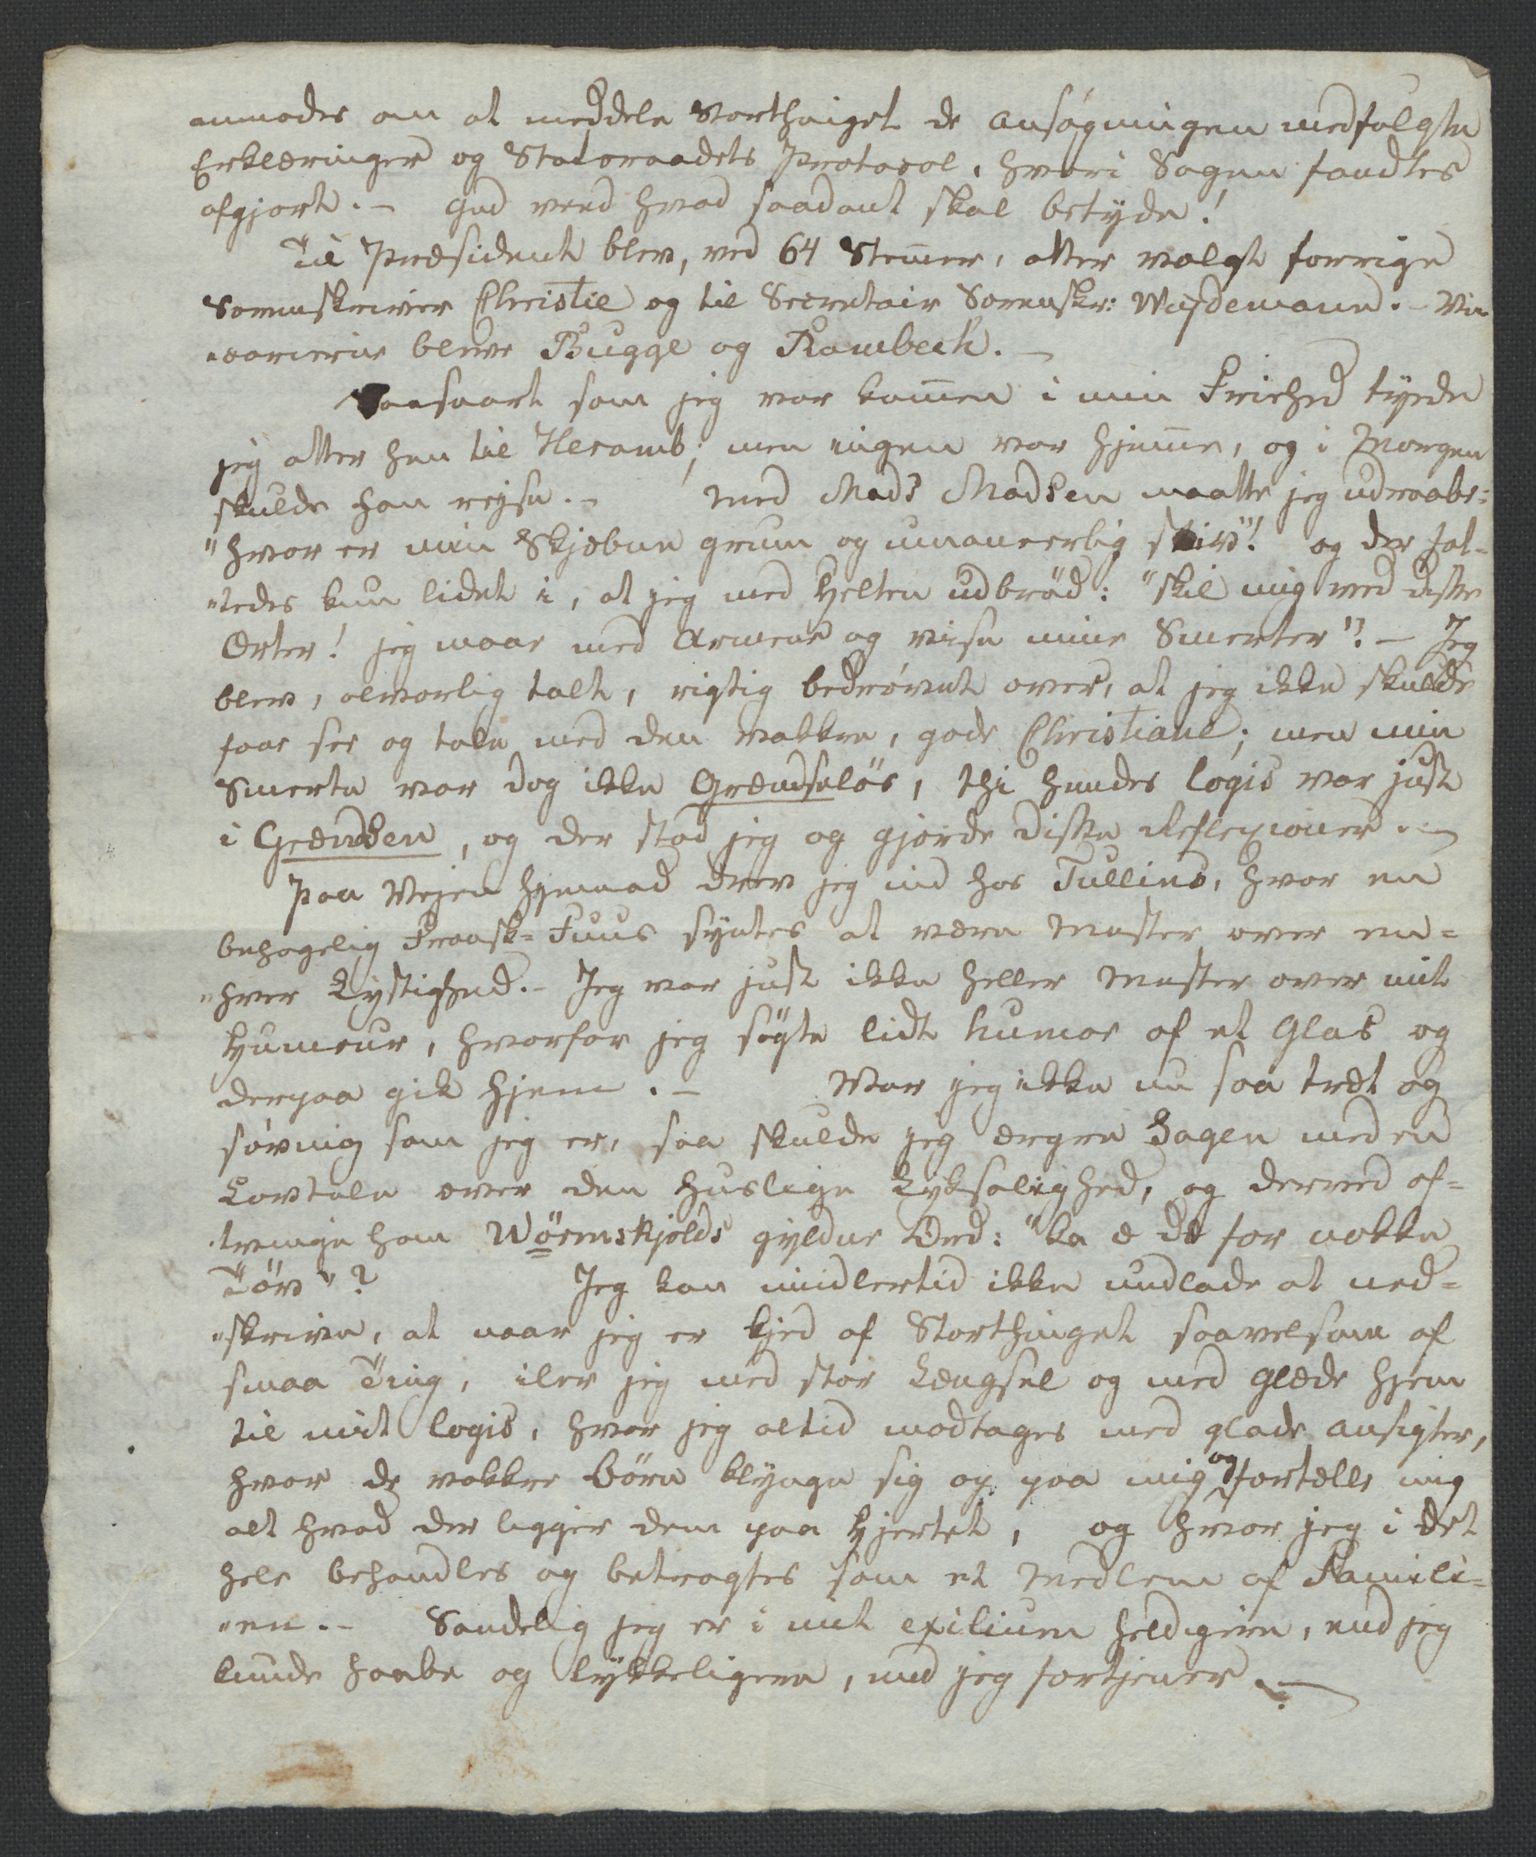 anmodes om at meddele Storthinget de Ansøgningen medfulgte
Erklæringer og Statsraadets Protocol, hvori Sagen fandtes
afgjort. – Gud veed hvad saadant skal betyde!
Til Præsident blev, ved 64 Stemer, atter valgt forrige
Sorenskriver Christie og til Secretair Sorenskr: Weydemann. – Vi-
"carierne bleve Bugge og Rambech. –
Saasnart som jeg var komen i min Friehed tyede
jeg atter hen til Heramb; men ingen var hjeme, og i Morgen
skulde han rejse. – Med Mads Madsen maatte jeg udraabe:
"hvor er min Skjebne grum og umaneerlig stiv"! og der fat-
"tedes kun lidet i, at jeg med Helten udbröd: "skil mig ved disse
Orter! jeg maae med Armene og vise mine Smerter"? – Jeg
blev, alvorlig talt, rigtig bedrøvet over, at jeg ikke skulde
faae see og tale med den vakkre, gode Christiane; men min
Smerte var dog ikke Grændselös, thi hendes Logis var just
i Grændsen, og der stod jeg og gjorde disse Reflexioner. –
Paa Vejen hjemad drev jeg ind hos Tullins, hvor en
behagelig Fraask-Fuus syntes at være Mester over en-
"hver Lystighed. – Jeg var just ikke heller Mester over mit
Humeur, hvorfor jeg søgte lidt humor af et Glas og
derpaa gik hjem. – Var jeg ikke nu saa træt og
søvnig som jeg er, saa skulde jeg ærgre Hagen med en
Lovtale over den huslige Lyksalighed, og derved af-
"tvinge ham Wörmskjolds gyldne Ord: "ka æ de for nokke
Töv"? Jeg kan imidlertid ikke undlade at ned-
"skrive, at naar jeg er kjed af Storthinget saavelsom af
smaa Ting, iler jeg med stor Længsel og med Glæde hjem
til mit Logis, hvor jeg altid modtages med glade Ansigter,
hvor de vakkre Börn klynge sig op paa mig og fortælle mig
alt hvad der ligger dem paa Hjertet, og hvor jeg i det
hele behandles og betragtes som et Medlem af Famili-
"en. – Sandelig jeg er i mit exilium heldigere, end jeg
kunde haabe og lykkeligere, end jeg fortjener. –